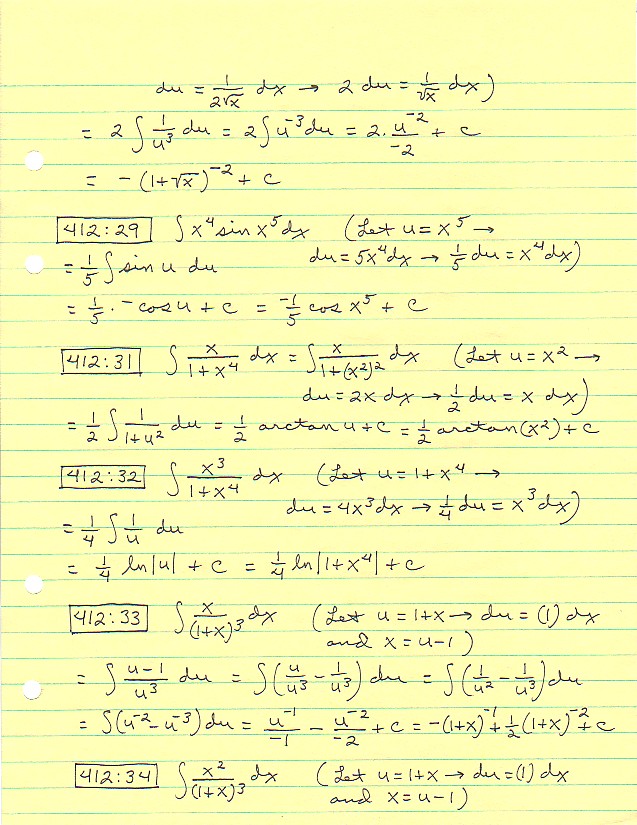 du = 1/(2√x) dx → 2 du = 1/√x dx)
= 2 ∫ 1/u³ du = 2 ∫ u⁻³ du = 2 · u⁻²/-2 + c
= -(1+√x)⁻² + c
412:29 ∫ x⁴ sin x⁵ dx (Let u = x⁵ →
du = 5x⁴ dx → 1/5 du = x⁴ dx)
= 1/5 ∫ sin u du
= 1/5 · -cos u + c = -1/5 cos x⁵ + c
412:31 ∫ x/(1+x⁴) dx = ∫ x/(1+(x²)²) dx (Let u = x² →
du = 2x dx → 1/2 du = x dx)
= 1/2 ∫ 1/(1+u²) du = 1/2 arctan u + c = 1/2 arctan(x²) + c
412:32 ∫ x³/(1+x⁴) dx (Let u = 1+x⁴ →
du = 4x³ dx → 1/4 du = x³ dx)
= 1/4 ∫ 1/u du
= 1/4 ln|u| + c = 1/4 ln|1+x⁴| + c
412:33 ∫ x/(1+x)³ dx (Let u = 1+x → du = (1) dx
and x = u-1)
= ∫ (u-1)/u³ du = ∫ (u/u³ - 1/u³) du = ∫ (1/u² - 1/u³) du
= ∫ (u⁻² - u⁻³) du = u⁻¹/-1 - u⁻²/-2 + c = -(1+x)⁻¹ + 1/2 (1+x)⁻² + c
412:34 ∫ x²/(1+x)³ dx (Let u = 1+x → du = (1) dx
and x = u-1)